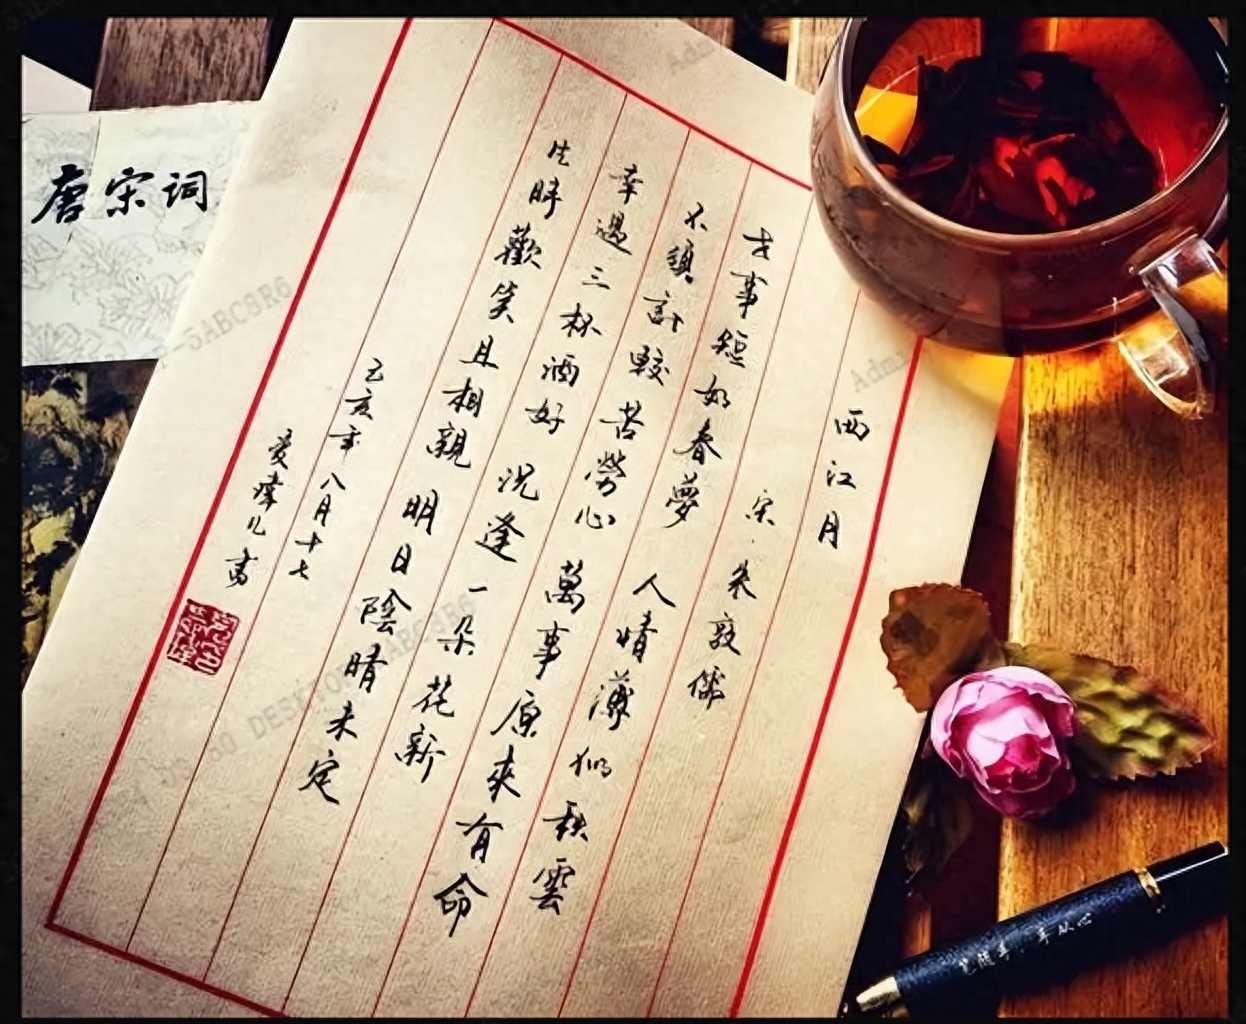 西江月
宋·朱敦儒
世事短如春夢 人情薄似秋雲
不須計較苦勞心 萬事原來有命
幸遇三杯酒好 況逢一朵花新
片時歡笑且相親 明日陰晴未定
己亥年八月十七
唐宋词
5ABC8R6